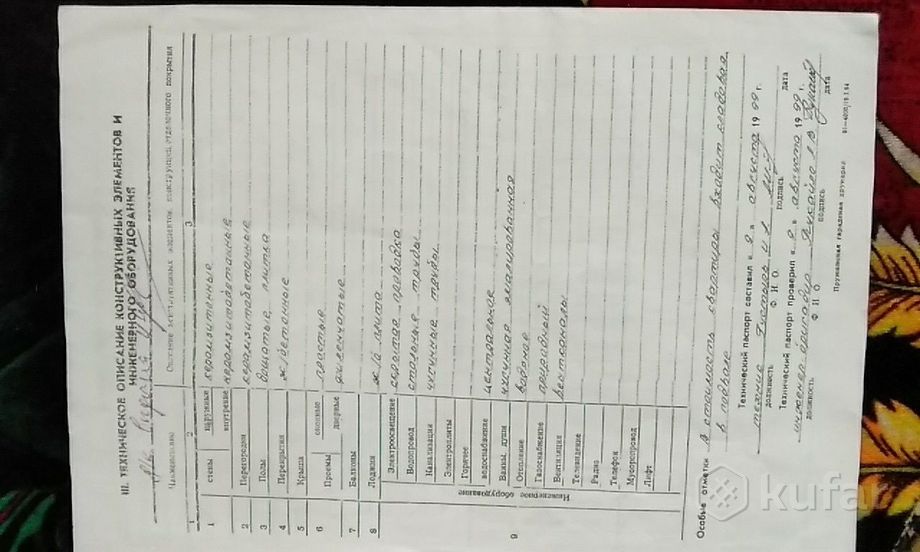 III. ТЕХНИЧЕСКОЕ ОПИСАНИЕ КОНСТРУКТИВНЫХ ЭЛЕМЕНТОВ И
ИНЖЕНЕРНОГО ОБОРУДОВАНИЯ
Описание конструктивных элементов, конструкций, отделочного покрытия
1 2 3
1 стены наружные керамзитенные
внутрение керамзитобетонные
2 Перегородки керамзитобетонные
3 Полы дощатые, плитка
4 Перекрытия ж/бетонные
5 Крыша
6 Проемы оконные простые
дверные филенчатые
7 Балконы
8 Лоджии ж/б плита
9 Инженерное оборудование
Электроосвещение скрытая проводка
Водопровод стальные трубы
Канализация чугунные трубы
Электроплиты
Горячее
водоснабжение центральное
Ванны, души чугунная эмалированная
Отопление водяное
Газоснабжение природный
Вентиляция вентканалы
Телевидение
Радио
Телефон
Мусоропровод
Лифт
Особые отметки В стоимость квартиры входит кладовая
в подвале
Технический паспорт составил «9» августа 1999 г.
техник
должность Ф И О подпись дата
Технический паспорт проверил «9» августа 1999 г.
инженер бригадир
должность Ф И О подпись дата
Пружанская городская друкарня
kufar